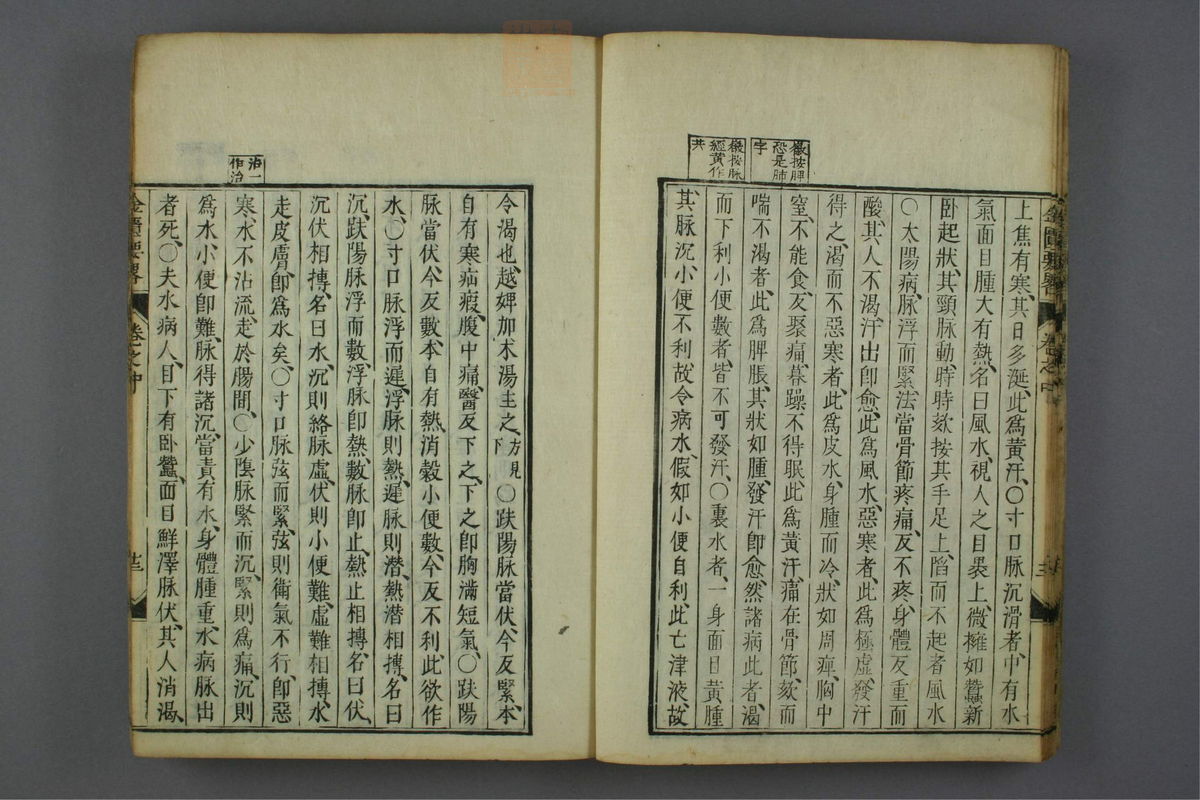 金匱要略 卷之中
嚴按脾
恐是肺
字
嚴按脉
經黃作
共
上焦有寒、其口多涎、此爲黃汗、○寸口脉沉滑者、中有水
氣、面目腫大有熱、名曰風水、視人之目窠上、微擁如蠶新
卧起狀、其頸脉動、時時欬、按其手足上、陷而不起者風水
○太陽病、脉浮而緊、法當骨節疼痛、反不疼、身體反重而
酸、其人不渴、汗出卽愈、此爲風水、惡寒者、此爲極虛、發汗
得之、渴而不惡寒者、此爲皮水、身腫而冷、狀如周痺、胸中
窒、不能食、反聚痛、暮躁不得眠、此爲黃汗、痛在骨節、欬而
喘、不渴者、此爲脾脹、其狀如腫、發汗卽愈、然諸病此者、渴
而下利、小便數者、皆不可發汗、○裏水者、一身面目黃腫
其脉沉、小便不利、故令病水、假如小便自利、此亡津液、故
沾一
作治
令渴也、越婢加朮湯主之、方見下○趺陽脉當伏、今反緊、本
自有寒疝瘕、腹中痛、醫反下之、下之卽胸滿短氣、○趺陽
脉當伏、今反數、本自有熱、消穀小便數、今反不利、此欲作
水、○寸口脉浮而遲、浮脉則熱、遲脉則潛、熱潛相搏、名曰
沉、趺陽脉浮而數、浮脉卽熱、數脉卽止、熱止相搏、名曰伏、
沉伏相搏、名曰水、沉則絡脉虛、伏則小便難、虛難相搏、水
走皮膚、卽爲水矣、○寸口脉弦而緊、弦則衛氣不行、卽惡
寒、水不沾流、走於腸間、○少陰脉緊而沉、緊則爲痛、沉則
爲水、小便卽難、脉得諸沉、當責有水、身體腫重、水病脉出
者死、○夫水病人、目下有卧蠶、面目鮮澤、脉伏、其人消渴、
金匱要略 卷之中 廿三